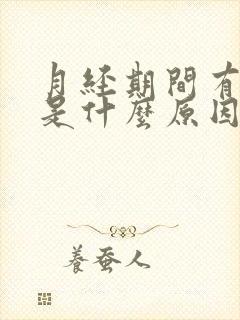 月经期間有
是什麼原因
養蚕人